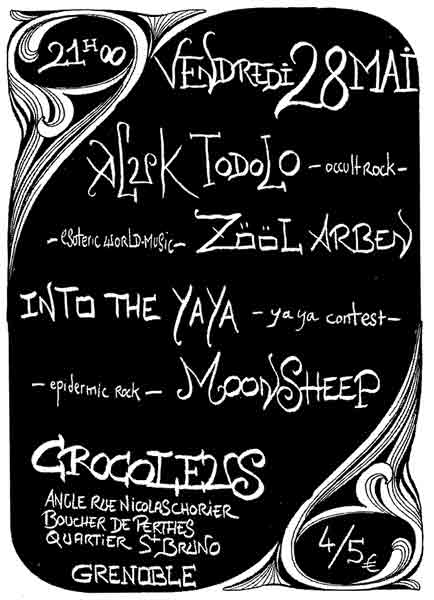 21H00
VENDREDI 28 MAI
ALUK TODOLO - OCCULT ROCK -
- ESOTERIC WORLD-MUSIC - ZÖÖL ARBEN
INTO THE YAYA - yaya contest -
- epidermic rock - MOONSHEEP
CROCOLEUS
ANGLE RUE NICOLAS CHORIER
BOUCHER DE PERTHES
QUARTIER St BRUNO
GRENOBLE
4/5€